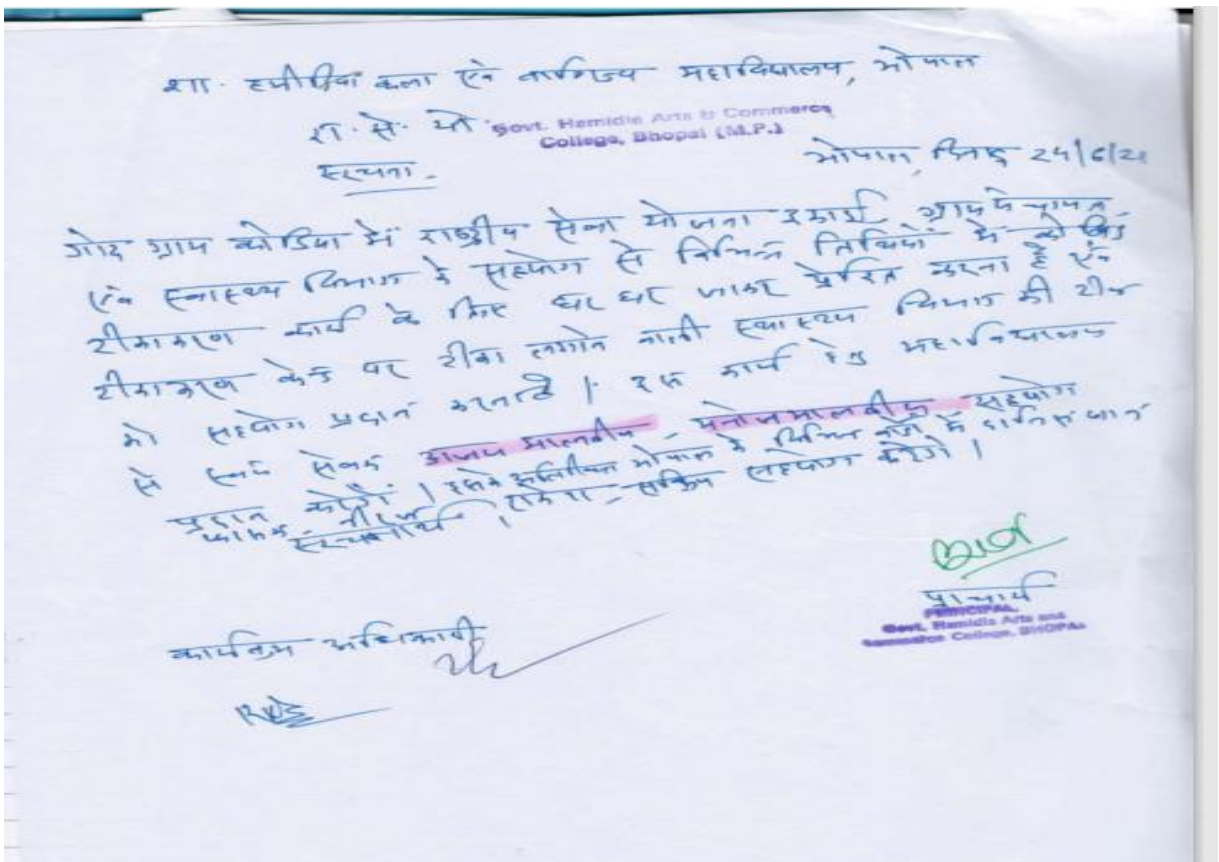 शा. हमीदिया कला एवं वाणिज्य महाविद्यालय, भोपाल
रा. से. यो.
Govt. Hamidia Arts & Commerce
College, Bhopal (M.P.)
सूचना
भोपाल, दिनांक 24/6/21
गोद ग्राम कोडिया में राष्ट्रीय सेवा योजना इकाई ग्राम पंचायत
एवं स्वास्थ्य विभाग के सहयोग से विभिन्न तिथियों में कोविड
टीकाकरण कार्य के लिए घर घर जाकर प्रेरित करना है एवं
टीकाकरण केन्द्र पर टीका लगाने वाली स्वास्थ्य विभाग की टीम
को सहयोग प्रदान करना है। इस कार्य हेतु महाविद्यालय
से स्वयं सेवक अजय मालवीय, मनोज मालवीय सहयोग
प्रदान करेंगे। इसके अतिरिक्त भोपाल के विभिन्न
सक्रिय सहयोग करेंगे।
सूचनार्थ।
प्राचार्य
PRINCIPAL
Govt. Hamidia Arts and
Commerce College, BHOPAL
कार्यक्रम अधिकारी